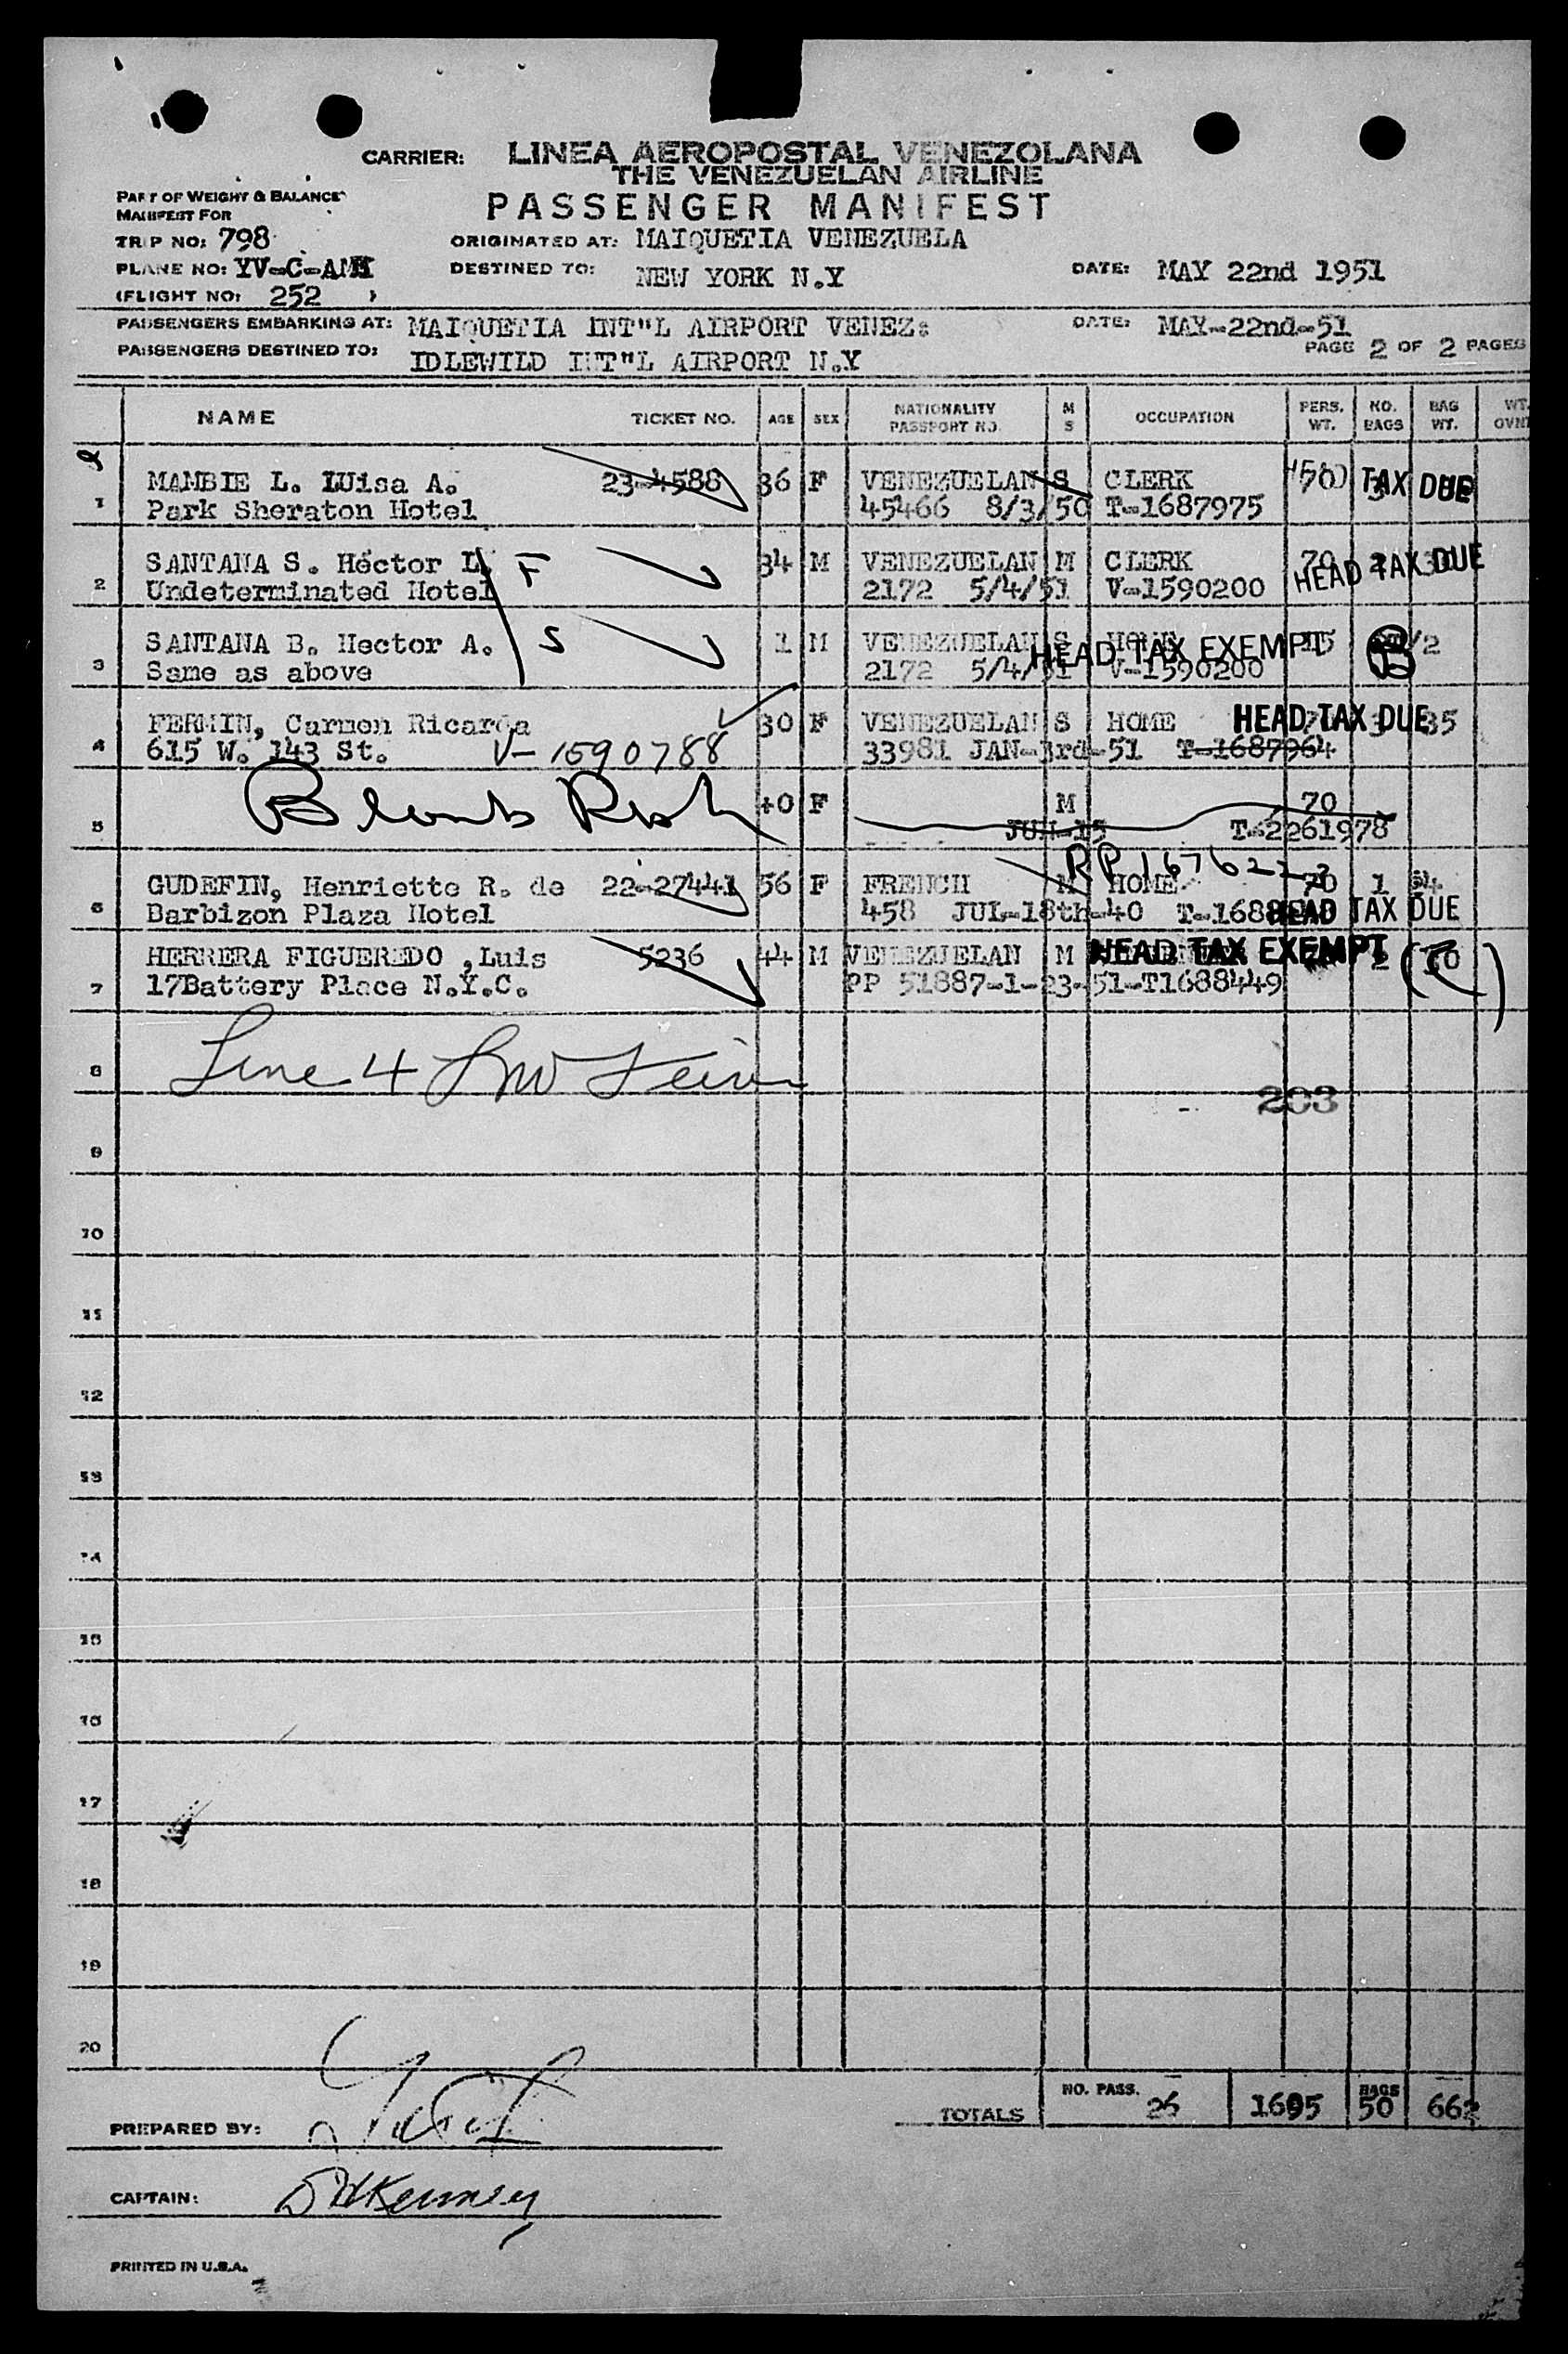 CARRIER: LINEA AEROPOSTAL VENEZOLANA
THE VENEZUELAN AIRLINE
PASSENGER MANIFEST
PART OF WEIGHT & BALANCE
MANIFEST FOR
TRIP NO: 798
ORIGINATED AT: MAIQUETIA VENEZUELA
PLANE NO: YV-C-AMH
DESTINED TO: NEW YORK N.Y
DATE: MAY 22nd 1951
(FLIGHT NO: 252 )
PASSENGERS EMBARKING AT: MAIQUETIA INT"L AIRPORT VENEZ:
DATE: MAY-22nd-51
PASSENGERS DESTINED TO: IDLEWILD INT"L AIRPORT N.Y
PAGE 2 OF 2 PAGES
NAME TICKET NO. AGE SEX NATIONALITY PASSPORT NO. M S OCCUPATION PERS. WT. NO. BAGS BAG WT. WT. OVN
1 MAMBIE L. LUisa A. 23-4588 36 F VENEZUELAN S CLERK 70 TAX DUE
Park Sheraton Hotel 45466 8/3/50 T-1687975
2 SANTANA S. Héctor L. F 34 M VENEZUELAN M CLERK 70 2 HEAD TAX DUE
Undeterminated Hotel 2172 5/4/51 V-1590200
3 SANTANA B. Hector A. S 1 M VENEZUELAN S HOME HEAD TAX EXEMPT 15
Same as above 2172 5/4/51 V-1590200
4 FERMIN, Carmen Ricarda 30 F VENEZUELAN S HOME HEAD TAX DUE 70 3 35
615 W. 143 St. V-1590788 33981 JAN-3rd-51 T-1687964
5 40 F M 70
JUN-15 T-2261978
6 GUDEFIN, Henriette R. de 22-27441 56 F FRENCH M HOME 70 1
Barbizon Plaza Hotel 458 JUL-18th-40 HEAD TAX DUE
7 HERRERA FIGUEREDO ,Luis 5236 44 M VENEZUELAN M HEAD TAX EXEMPT 2 (R)
17Battery Place N.Y.C. PP 51887-1-23-51-T1688449
8 Line 4
203
9
10
11
12
13
14
15
16
17
18
19
20
TOTALS NO. PASS. 26 1695 BAGS 50 662
PREPARED BY:
CAPTAIN:
PRINTED IN U.S.A.